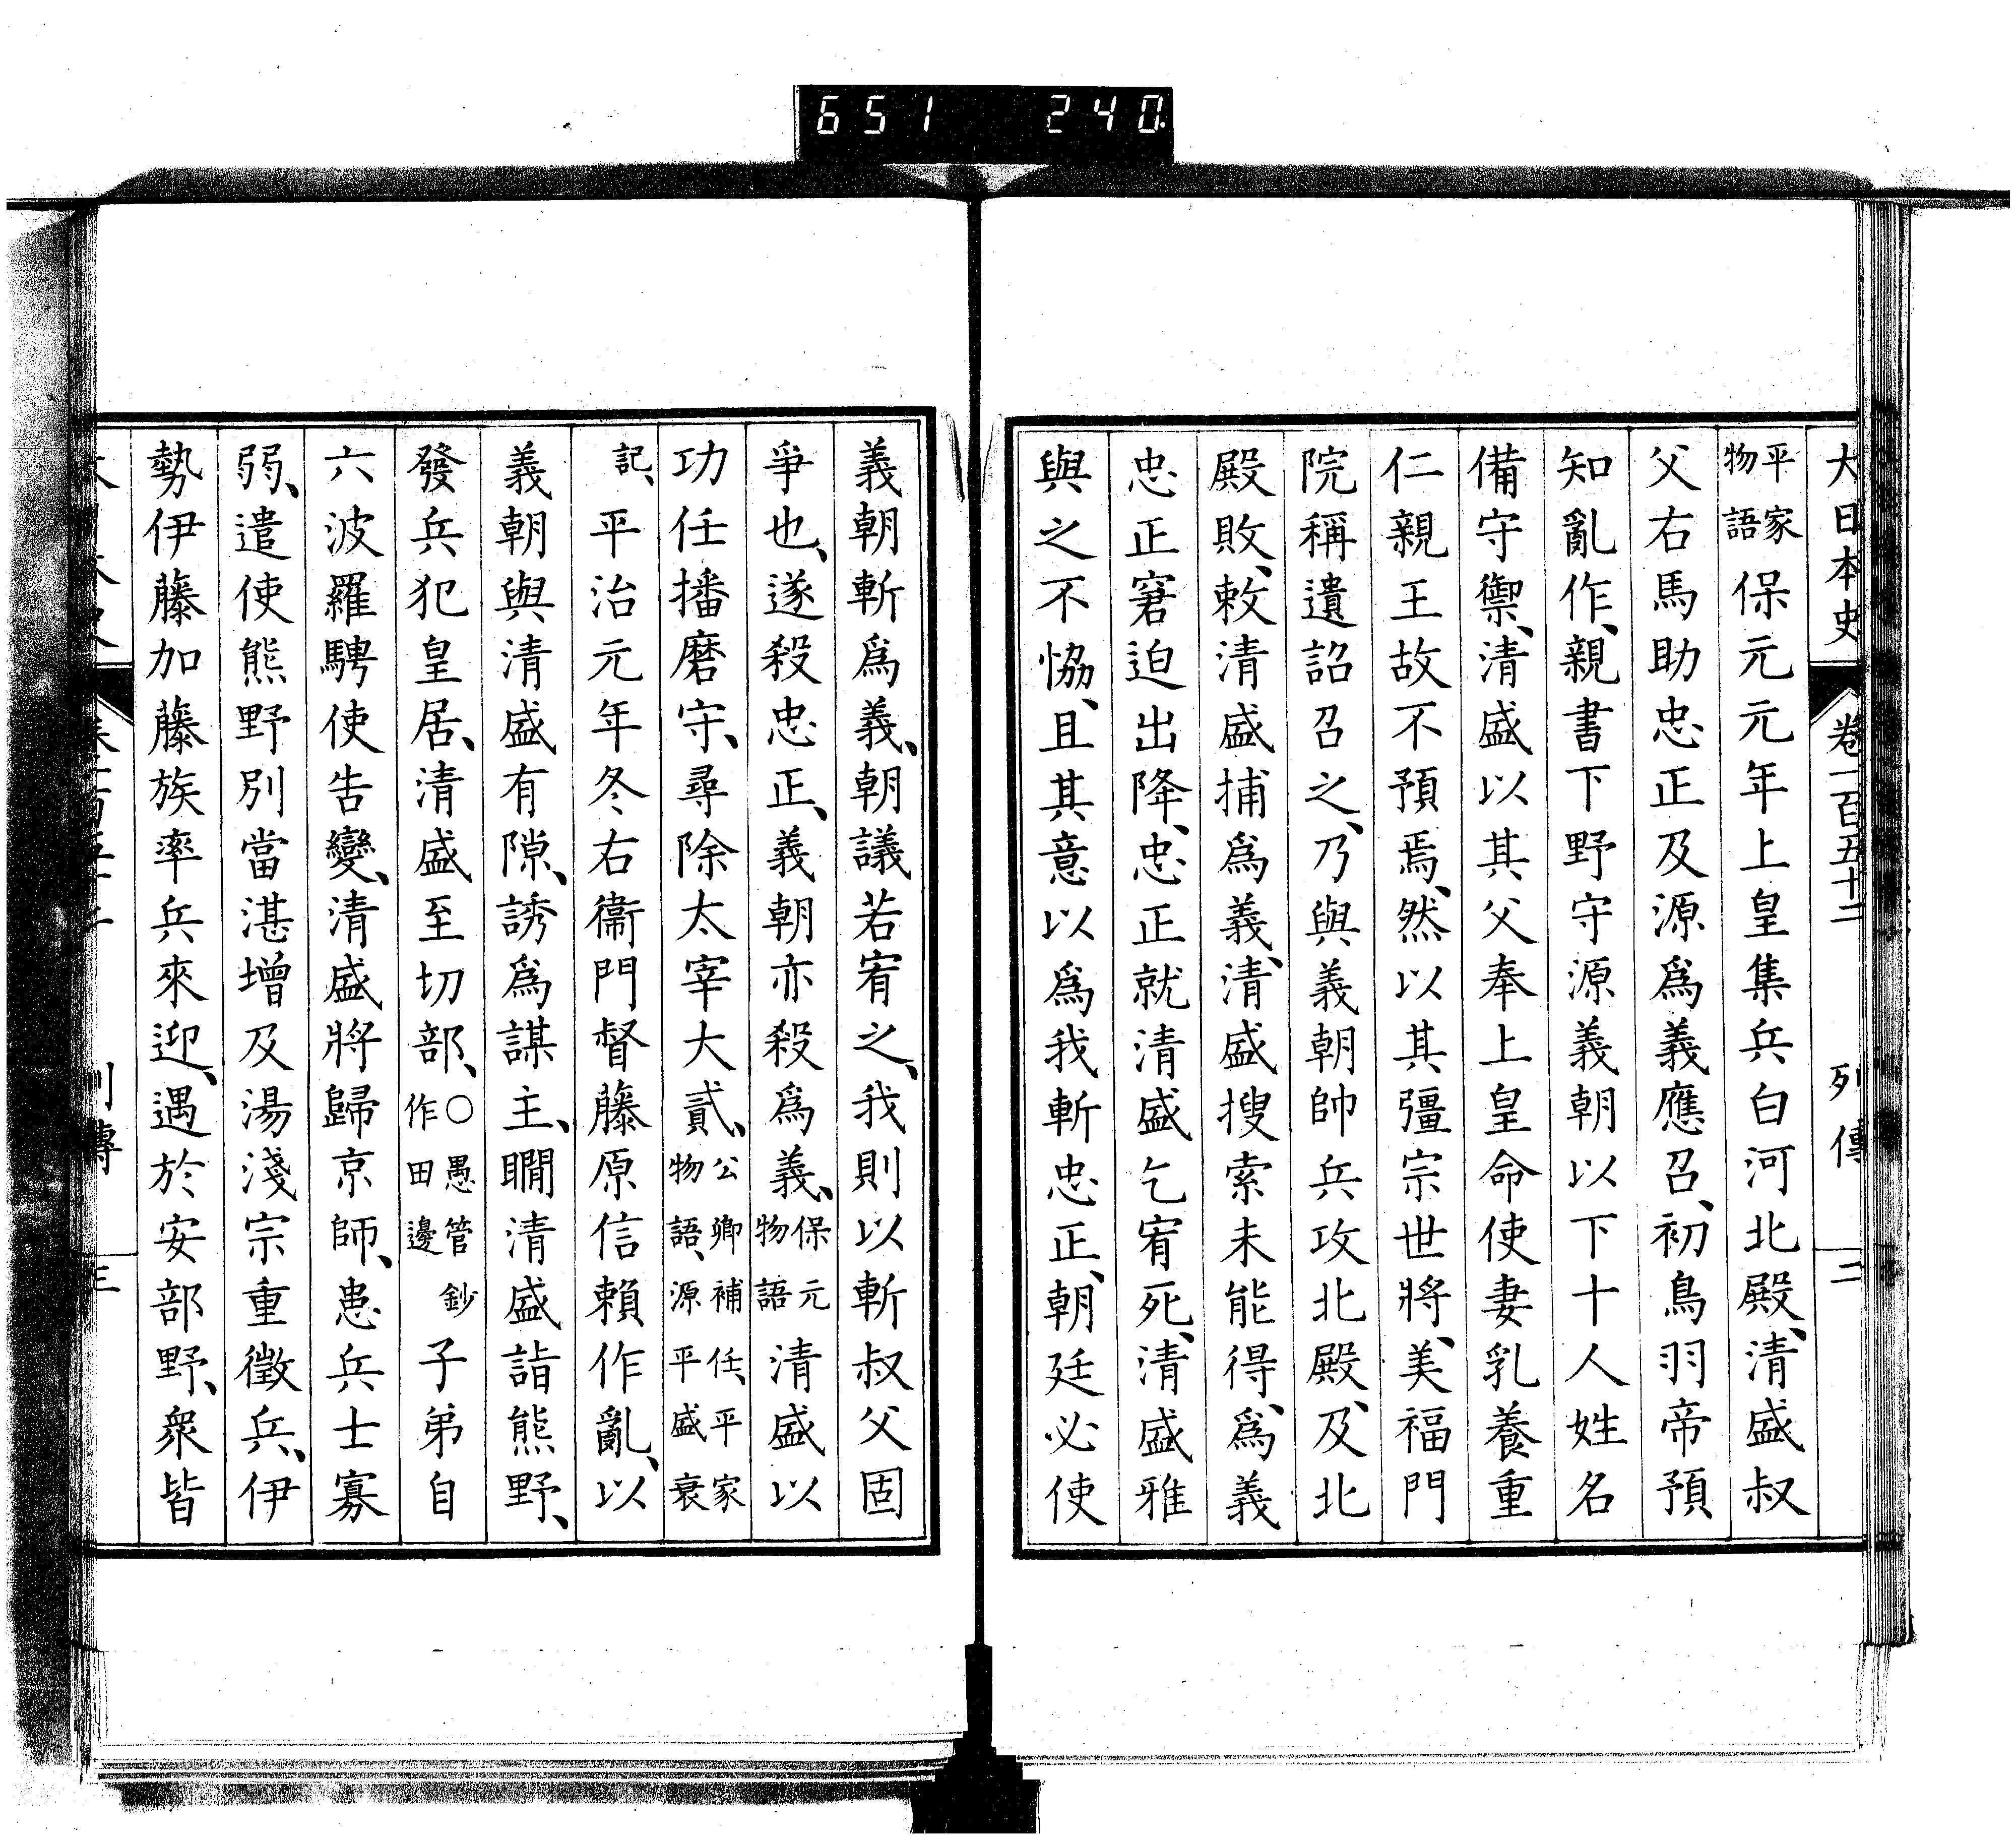 651 240
大日本史 卷一百五十二 列傳 二
平家物語保元元年上皇集兵白河北殿、清盛叔
父右馬助忠正及源爲義應召、初鳥羽帝預
知亂作、親書下野守源義朝以下十人姓名
備守禦、清盛以其父奉上皇命使妻乳養重
仁親王故不預焉、然以其彊宗世將、美福門
院稱遺詔召之、乃與義朝帥兵攻北殿、及北
殿敗、敕清盛捕爲義、清盛搜索未能得、爲義
忠正窘迫出降、忠正就清盛乞宥死、清盛雅
與之不恊、且其意以爲我斬忠正、朝廷必使
義朝斬爲義、朝議若宥之、我則以斬叔父固
爭也、遂殺忠正、義朝亦殺爲義、保元物語清盛以
功任播磨守、尋除太宰大貳、公卿補任、平家物語、源平盛衰
記、平治元年冬右衞門督藤原信賴作亂、以
義朝與清盛有隙、誘爲謀主、瞷清盛詣熊野、
發兵犯皇居、清盛至切部、○愚管鈔作田邊子弟自
六波羅騁使告變、清盛將歸京師、患兵士寡
弱、遣使熊野別當湛增及湯淺宗重徵兵、伊
勢伊藤加藤族率兵來迎、遇於安部野、衆皆
列傳 三